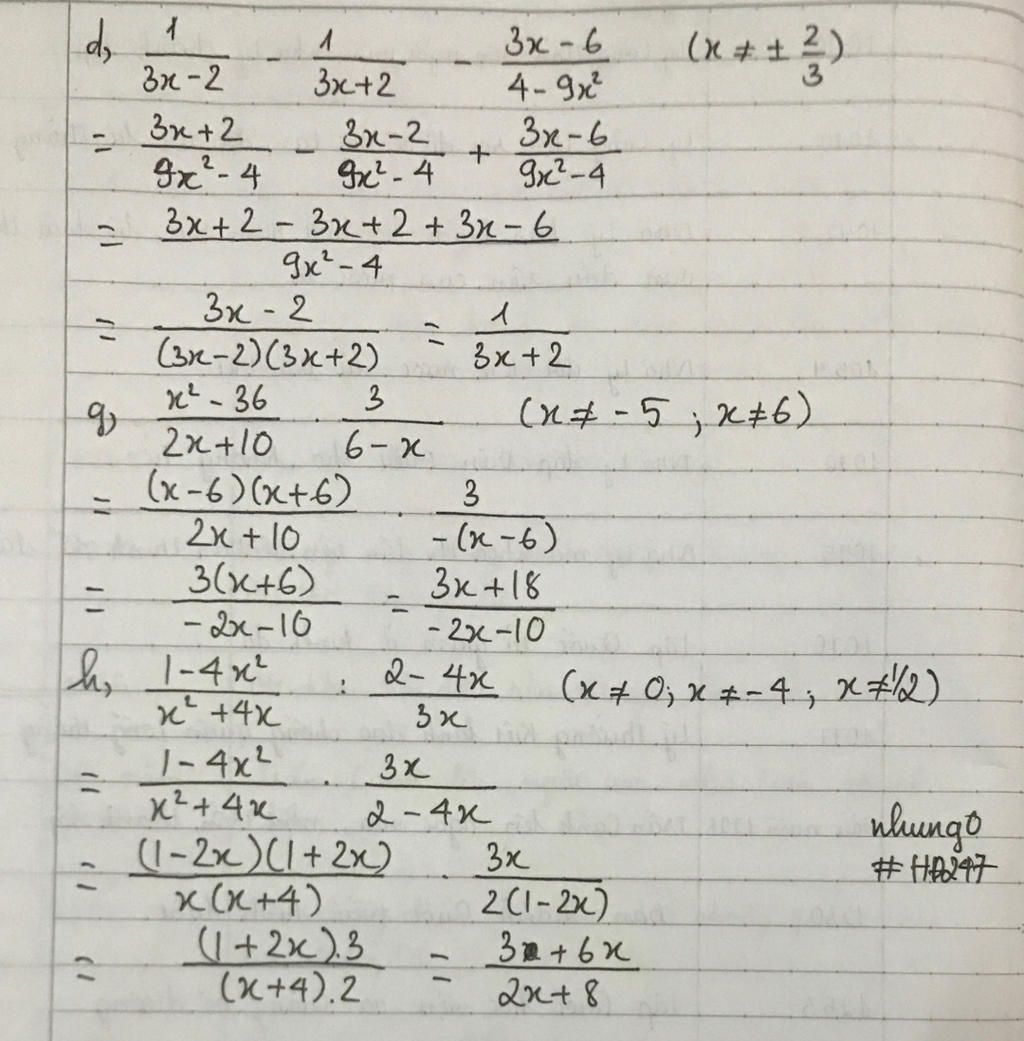 d, 1/(3x-2) - 1/(3x+2) - (3x-6)/(4-9x²) (x ≠ ± 2/3)
= (3x+2)/(9x²-4) - (3x-2)/(9x²-4) + (3x-6)/(9x²-4)
= (3x+2-3x+2+3x-6)/(9x²-4)
= (3x-2)/((3x-2)(3x+2)) = 1/(3x+2)
g, (x²-36)/(2x+10) . 3/(6-x) (x ≠ -5 ; x ≠ 6)
= ((x-6)(x+6))/(2x+10) . 3/(-(x-6))
= (3(x+6))/(-2x-10) = (3x+18)/(-2x-10)
h, (1-4x²)/(x²+4x) : (2-4x)/(3x) (x ≠ 0; x ≠ -4 ; x ≠ 1/2)
= (1-4x²)/(x²+4x) . (3x)/(2-4x)
nhung0
= ((1-2x)(1+2x))/(x(x+4)) . (3x)/(2(1-2x))
#HĐ247
= ((1+2x).3)/((x+4).2) = (3+6x)/(2x+8)